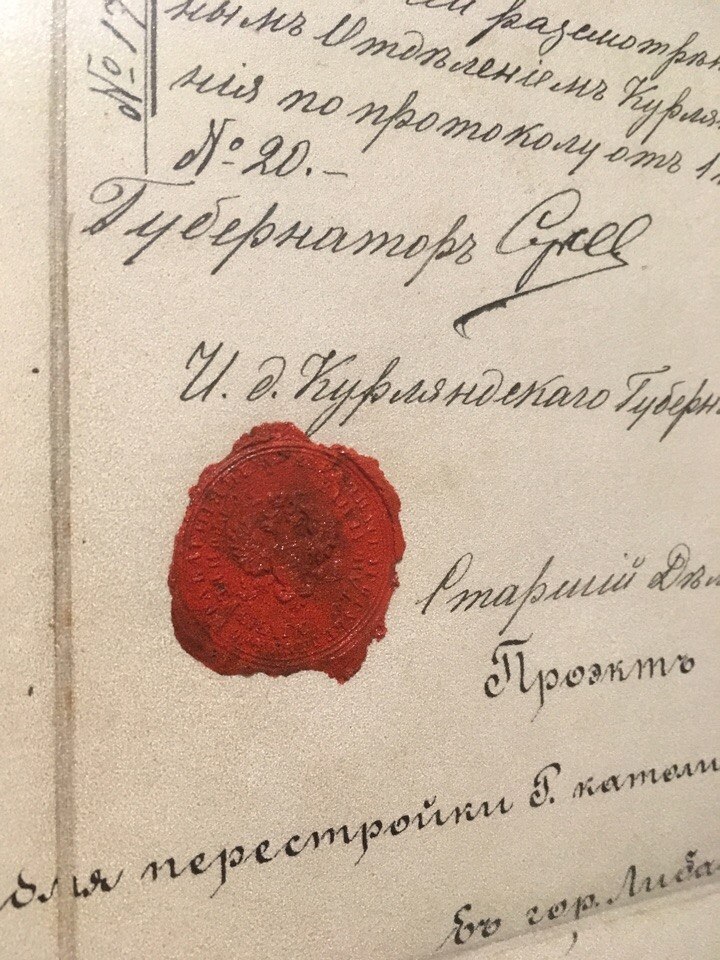 разсмотрѣн
нымъ Отдѣленіемъ Курлян
нія по протоколу отъ 1
№ 20.-
№ 17
Губернаторъ
И. д. Курляндскаго Губерн
Старшій Дѣл
Проэктъ
для перестройки Р. католи
Въ гор. Либа